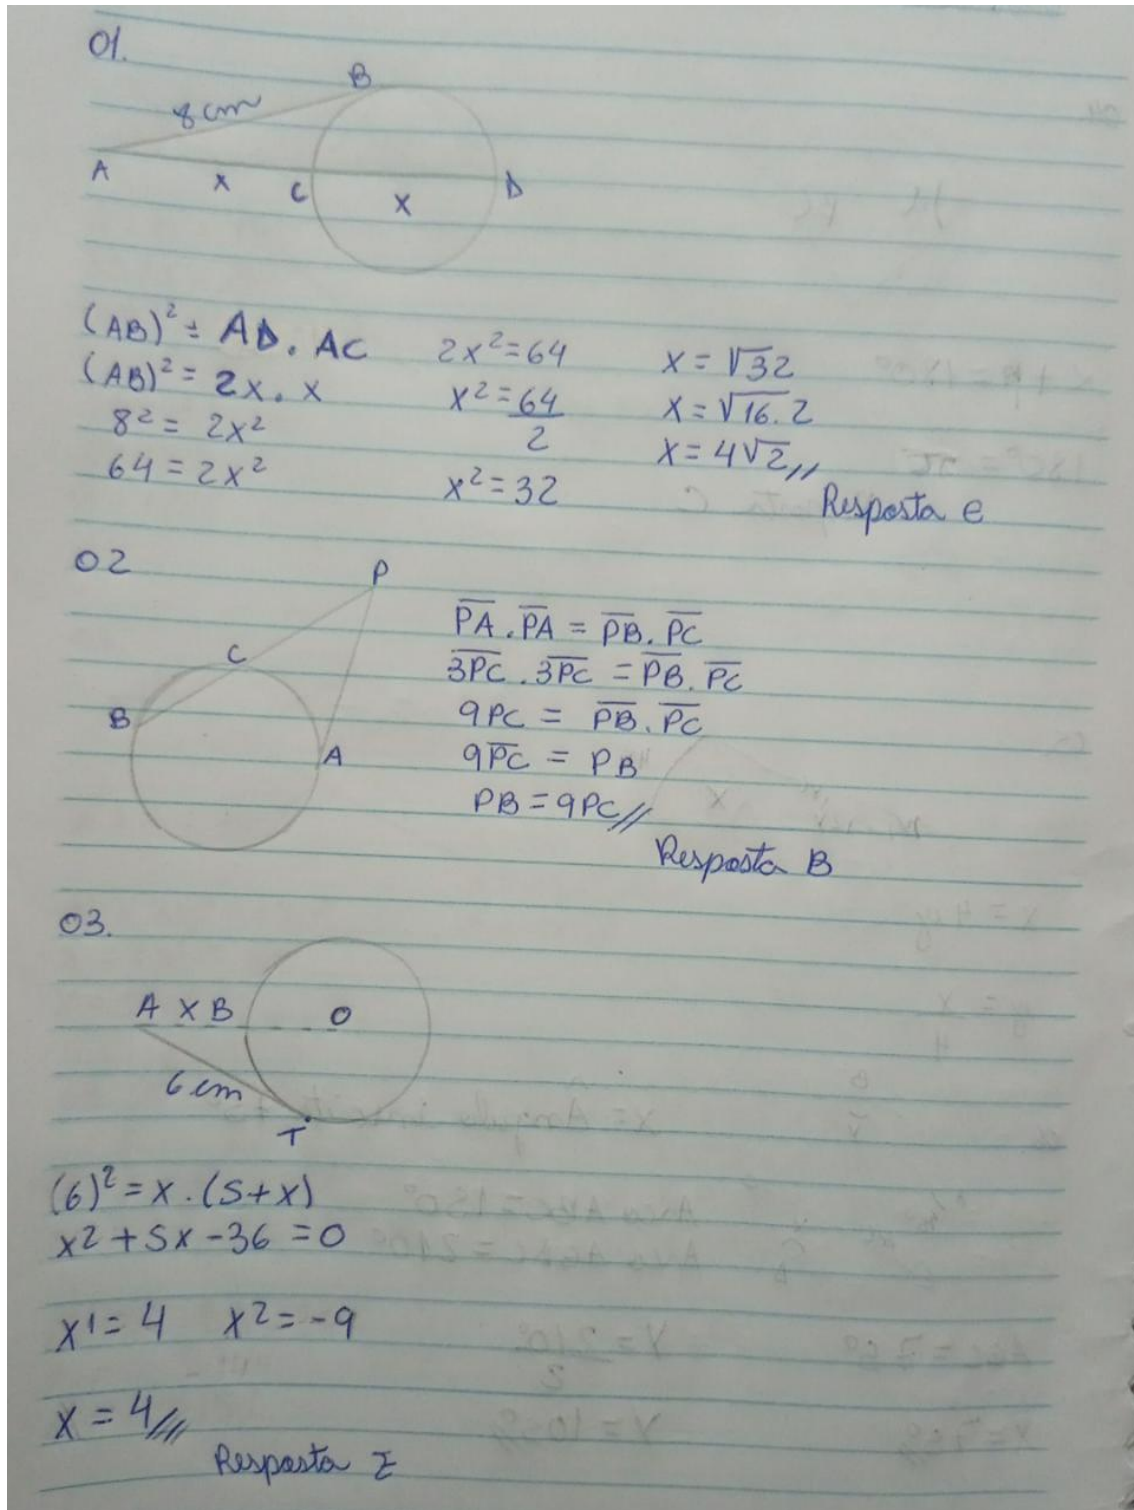 01.
B
8 cm
A
x
C
x
D
(AB)² = AD . AC
(AB)² = 2x . x
8² = 2x²
64 = 2x²
2x² = 64
x² = 64
2
x² = 32
x = √32
x = √16. 2
x = 4√2 //
Resposta e
02
P
C
B
A
PA . PA = PB . PC
3PC . 3PC = PB . PC
9PC = PB . PC
9PC = PB
PB = 9PC //
Resposta B
03.
A x B
O
6 cm
T
(6)² = x . (5+x)
x2 + 5x - 36 = 0
x1 = 4 x2 = -9
x = 4 ///
Resposta E